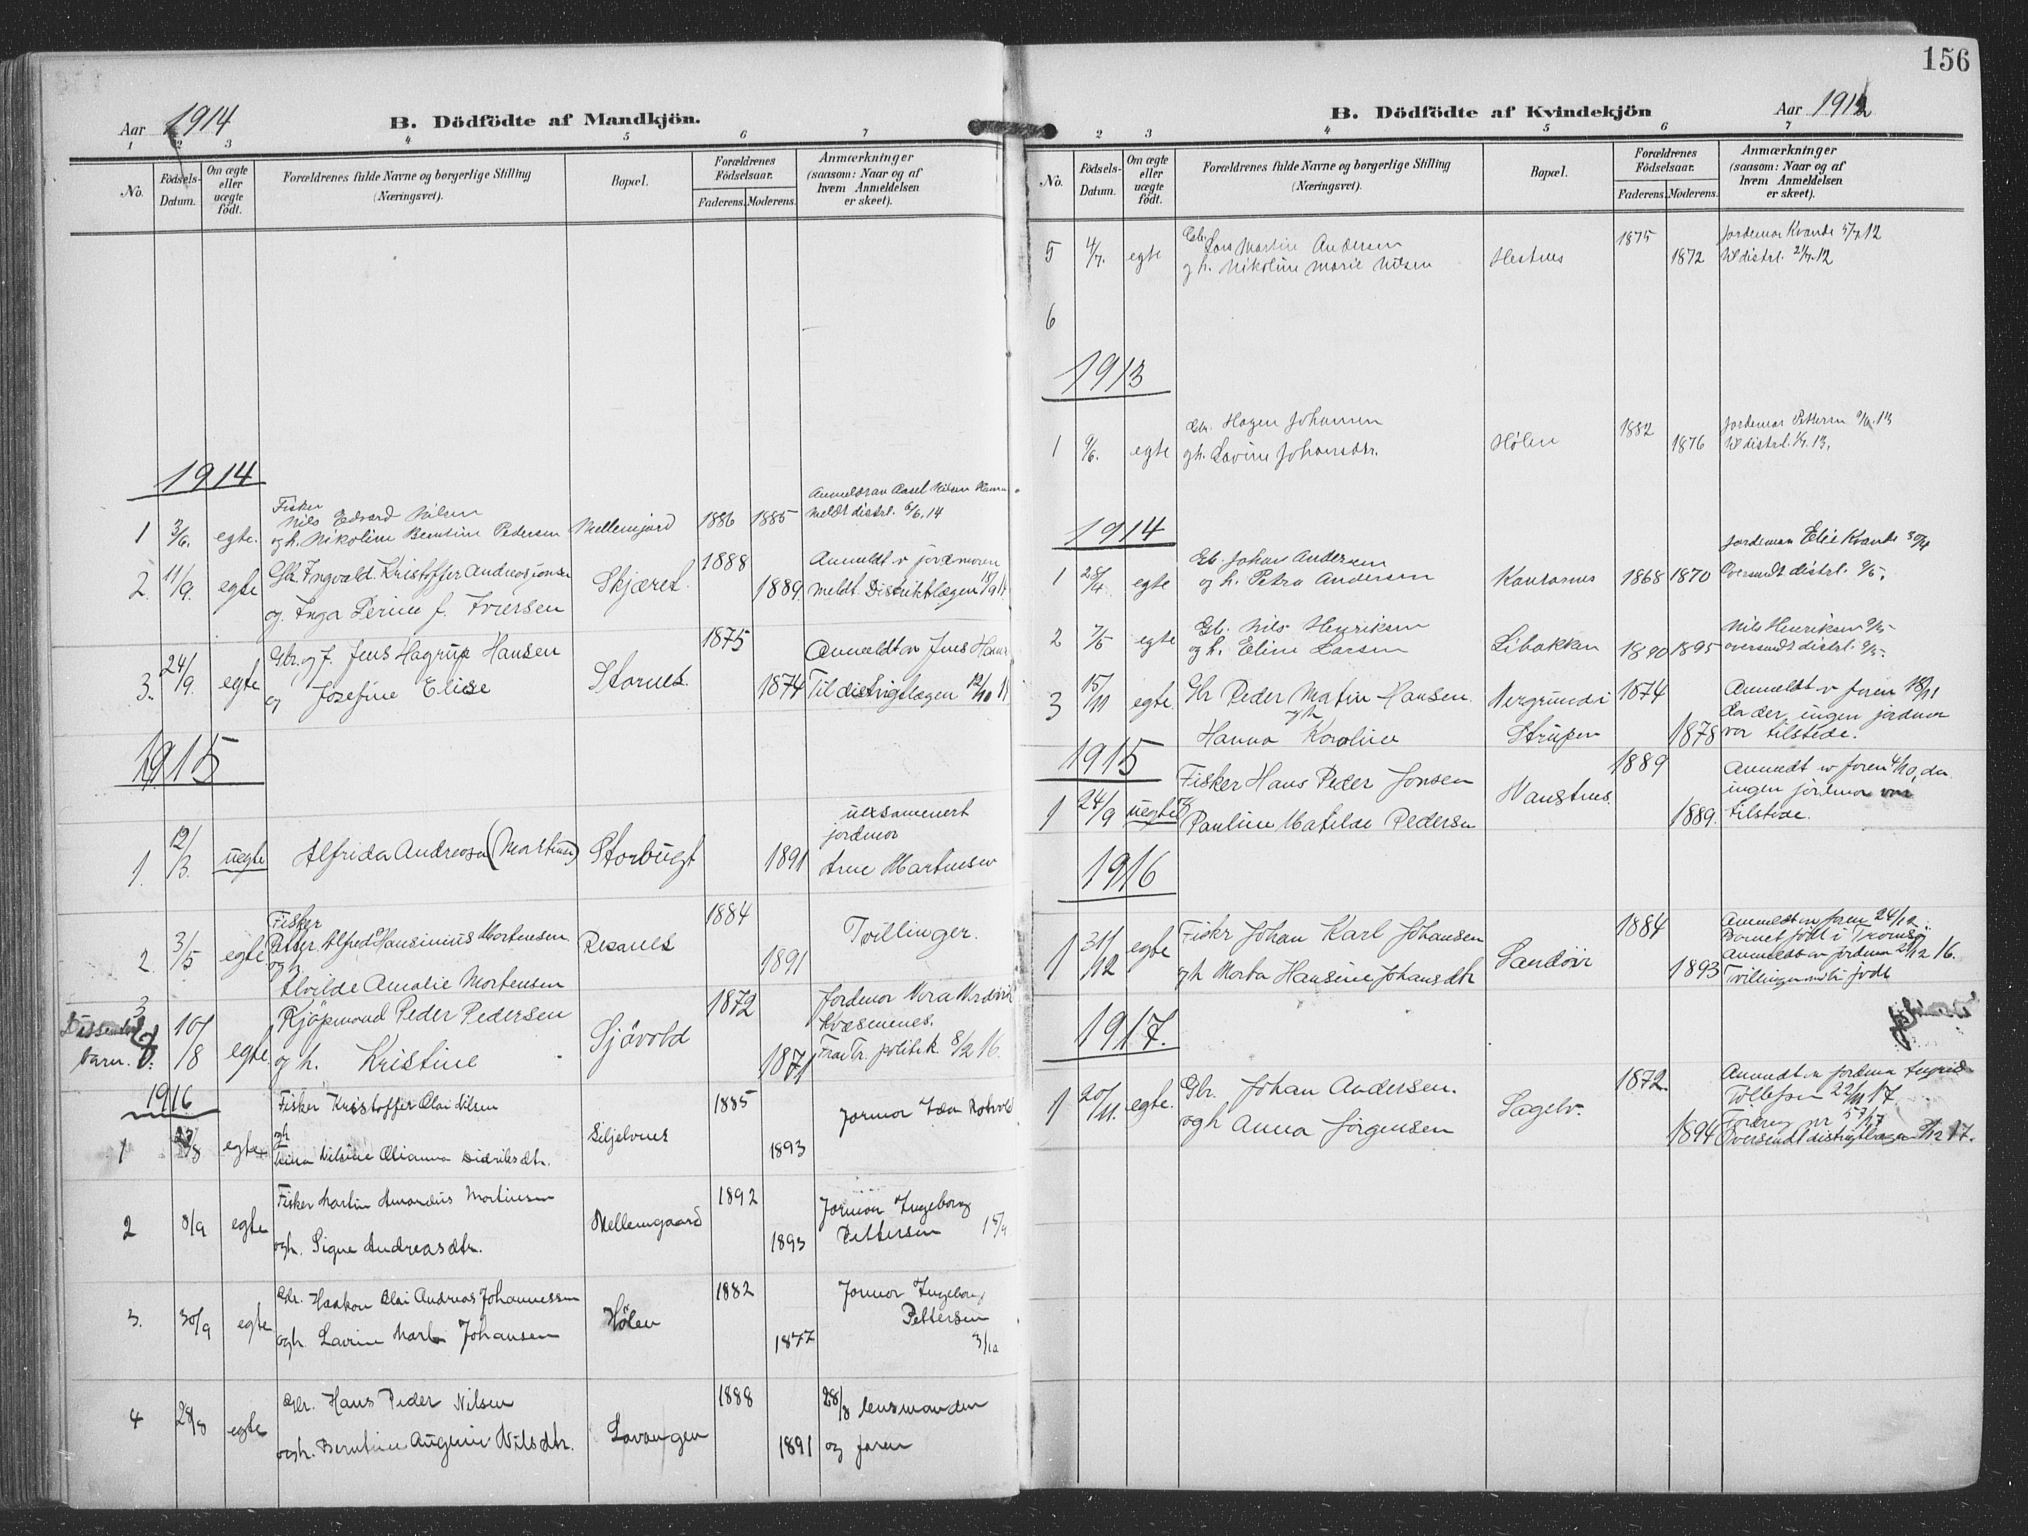 Aar 1914
B. Dödfödte af Mandkjön.
1 2 3 4 5 6 7
No.
Födsels-Datum.
Om ægte eller uægte födt.
Forældrenes fulde Navne og borgerlige Stilling
(Næringsvei).
Bopæl.
Forældrenes Födselsaar.
Faderens. Moderens.
Anmærkninger
(saasom: Naar og af
hvem Anmeldelsen
er skeet).
1914
Fisker
Nils Edvard Nilsen
1 3/6. egte. og h. Nikoline Berntine Pedersen Mellemjord 1886 1885
meldt distrl. 6/6.14
2. 11/9. egte Gbr. Ingvald Kristoffer Andreasjonsen
og Inga Perine f. Iversen Skjæret. 1888 1889
Anmeldt v jordmoren
meldt Distriktlægen 18/9 14
3. 24/9. egte Gbr. og f. Jens Hagrup Hansen
og Josefine Elise Stornes. 1875 1874
Anmeldt v Jens Hansen
Til distrigtlægen 12/10 14
1915
1. 12/3. uegte Alfrida Andreasen (Martinsen) Storbugt 1891
uexsamenert
jordmor
Arne Martinsen
2. 3/5 egte Fisker
Peter Alfred Hansinius Mortensen
og
Alvilde Amalie Mortensen Resanes 1884 1891
Tvillinger.
3
barn. 10/8 egte. Kjöpmand Peder Pedersen
og h. Kristine Sjövold 1872 1871
Jordmor Vera Nordvik
Kvæsmenes.
Fra Tr. politik. 8/2 16.
1916
1 8 egte Fisker Kristoffer Olai Nilsen
ogh
Nilsine Olianna Didriksdtr. Siljelvnes 1885 1893
Jormor
2 8/9 egte Fisker Martin Amandus Martinsen
ogh. Signe Andreasdtr. Mellemgaard 1892 1893
Jormor Ingeborg
Pettersen 15/9
3. 30/9 egte Gbr. Haakon Olai Andreas Johannessen
ogh. Lavine Marie Johansen Hölen 1882 1877
Jormor Ingeborg
Pettersen
3/10
4 28/8 egte Gbr. Hans Peder Nilsen
ogh. Berntine Augine Nilsdtr. Lavangen 1888 1891
28/8 lensmanden
og faren
156
B. Dödfödte af Kvindekjön
Aar 1912
2 3 4 5 6 7
No.
Födsels-Datum.
Om ægte eller uægte födt.
Forældrenes fulde Navne og borgerlige Stilling
(Næringsvei).
Bopæl.
Forældrenes Födselsaar.
Faderens. Moderens.
Anmærkninger
(saasom: Naar og af
hvem Anmeldelsen
er skeet).
5 4/7. egte Gbr. Lars Martin Andersen
og h. Nikoline Marie Nilsen Hestnes 1875 1872
Jordemor Kvande 5/7.12
til distrl. 12
6
1913
1 9/6. egte Gbr. Hagen Johansen
og h. Lavine Johansdtr. Hölen 1882 1876
Jordemor Pettersen 9/6.13
til distrl. 13.
1914
1 28/4. egte Gbr. Johan Andersen
og h. Petra Andersen Kantornes 1868 1870
Jordemor Elie Kvande 30/4
Oversendt distrl. 9/5.
2 7/5 egte Gbr. Nils Henriksen
og h. Eline Larsen Libakken 1890 1895
Nils Henriksen 9/5
oversendt distrl. 9/5.
3 15/11 egte. Gbr Peder Matin Hansen
ogh
Hanna Karoline Nergrund i
Strupen 1874 1878
Anmeldt v faren 18/11
da der ingen jordmor
var tilstede.
1915
1 24/9 uegte Fisker Hans Peder Jonsen
Pauline Matilde Pedersen 1889 1889.
Anmeldt v faren 4/10, da
ingen jordmor var
tilstede.
1916
1 31/12 egte Fiskr Johan Karl Johansen
ogh Marta Hansine Johansdtr Sandöir 1884 1893
Anmeldt v faren 24/12
Barnet födt i Tromsö
Anmeldt av jordmor 16.
födt
1917.
1 20/11. egte. Gbr. Johan Andersen.
ogh Anna Jörgensen Sagelv. 1872. 1894
Anmeldt v jordmor Ingrid
Tollefsen 22/11 17.
Oversendt distrigtlægen 17.